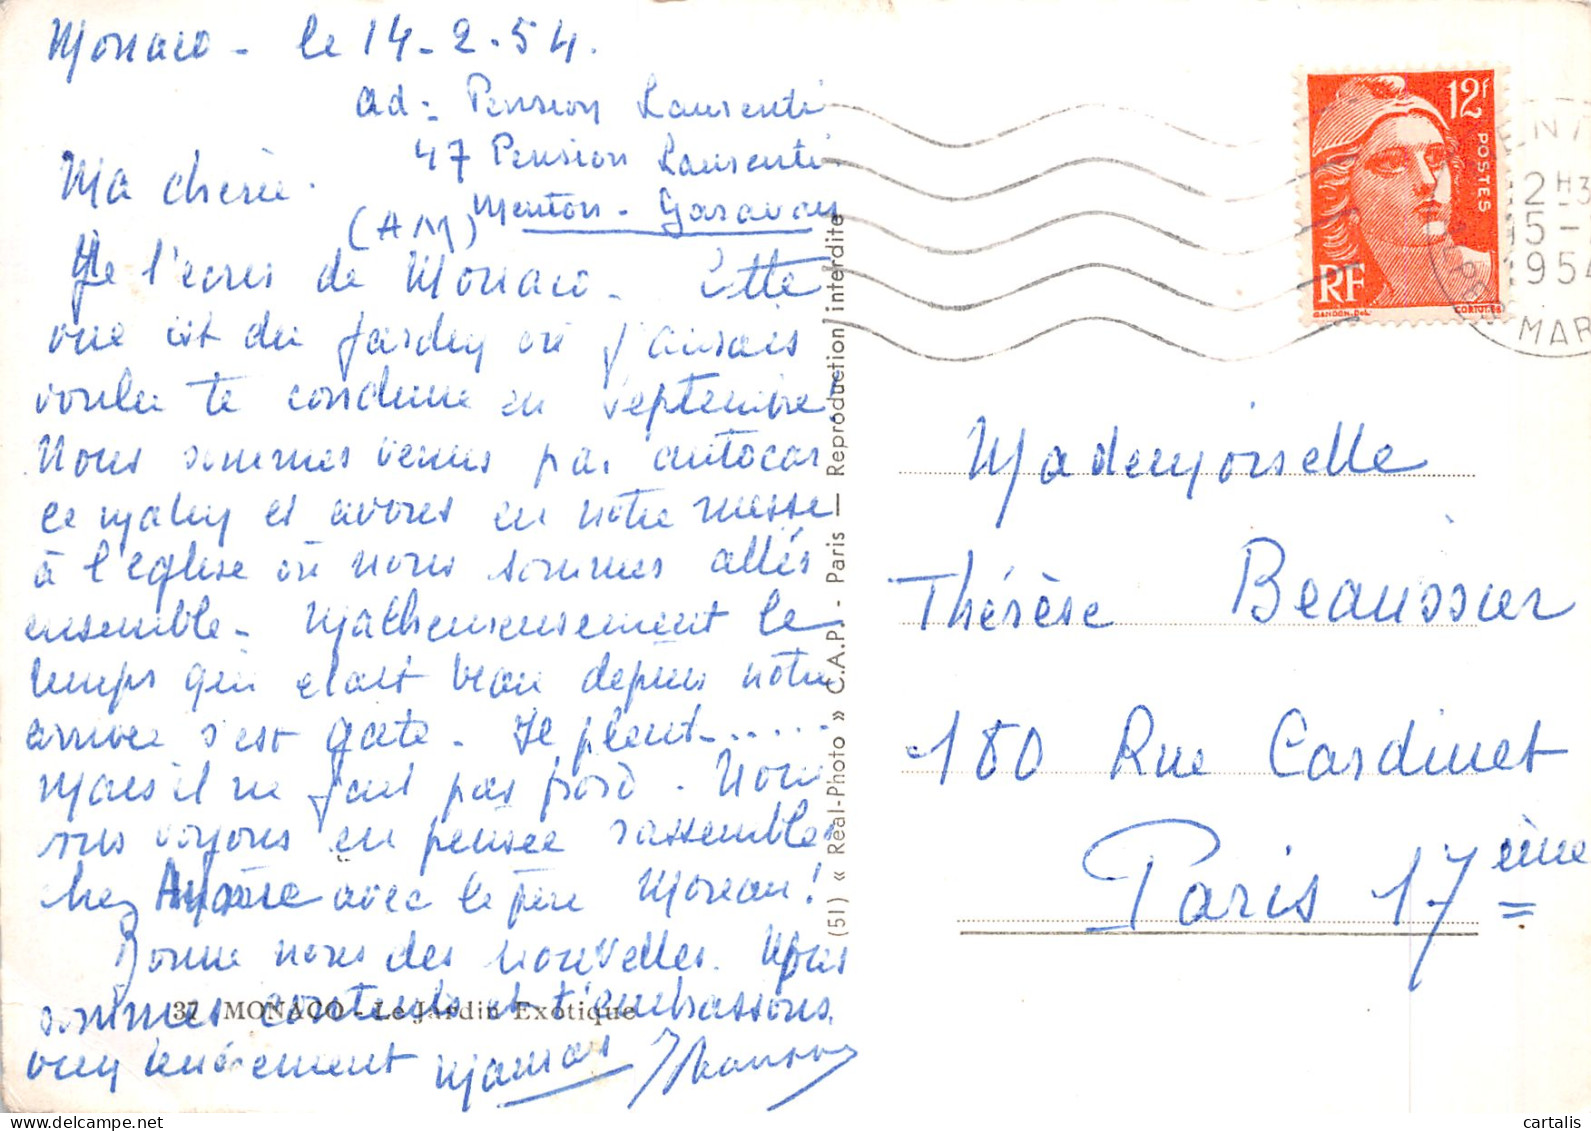 Monaco - le 14-2-54.
ad = Pension Laurenti
47 Pension Laurenti
Menton - Garavan
(AM)
Ma cherie.
Je t'ecris de Monaco - Cette
vue est du jardin où j'aurais
voulu te conduire en septembre
Nous sommes venus par autocar
ce matin et avons eu notre messe
à l'eglise où nous sommes allés
ensemble - Malheureusement le
temps qui etait beau depuis notre
arrivee s'est gaté - Il pleut.....
Mais il ne fait pas froid. Nous
vous voyons en pensée rassemblés
chez avec le père Moreau!
Donne nous des nouvelles. Nous
sommes contents et t'embrassons
bien tendrement Maman
37 MONACO - Le Jardin Exotique
(51) « Réal-Photo » C.A.P. - Paris — Reproduction interdite
12F
POSTES
RF
GANDON.DEL
CORTOT.SC
MENT
12H3
15-
1954
MAR
Mademoiselle
Thérèse Beaussier
180 Rue Cardinet
Paris 17ème
www.delcampe.net
cartalis